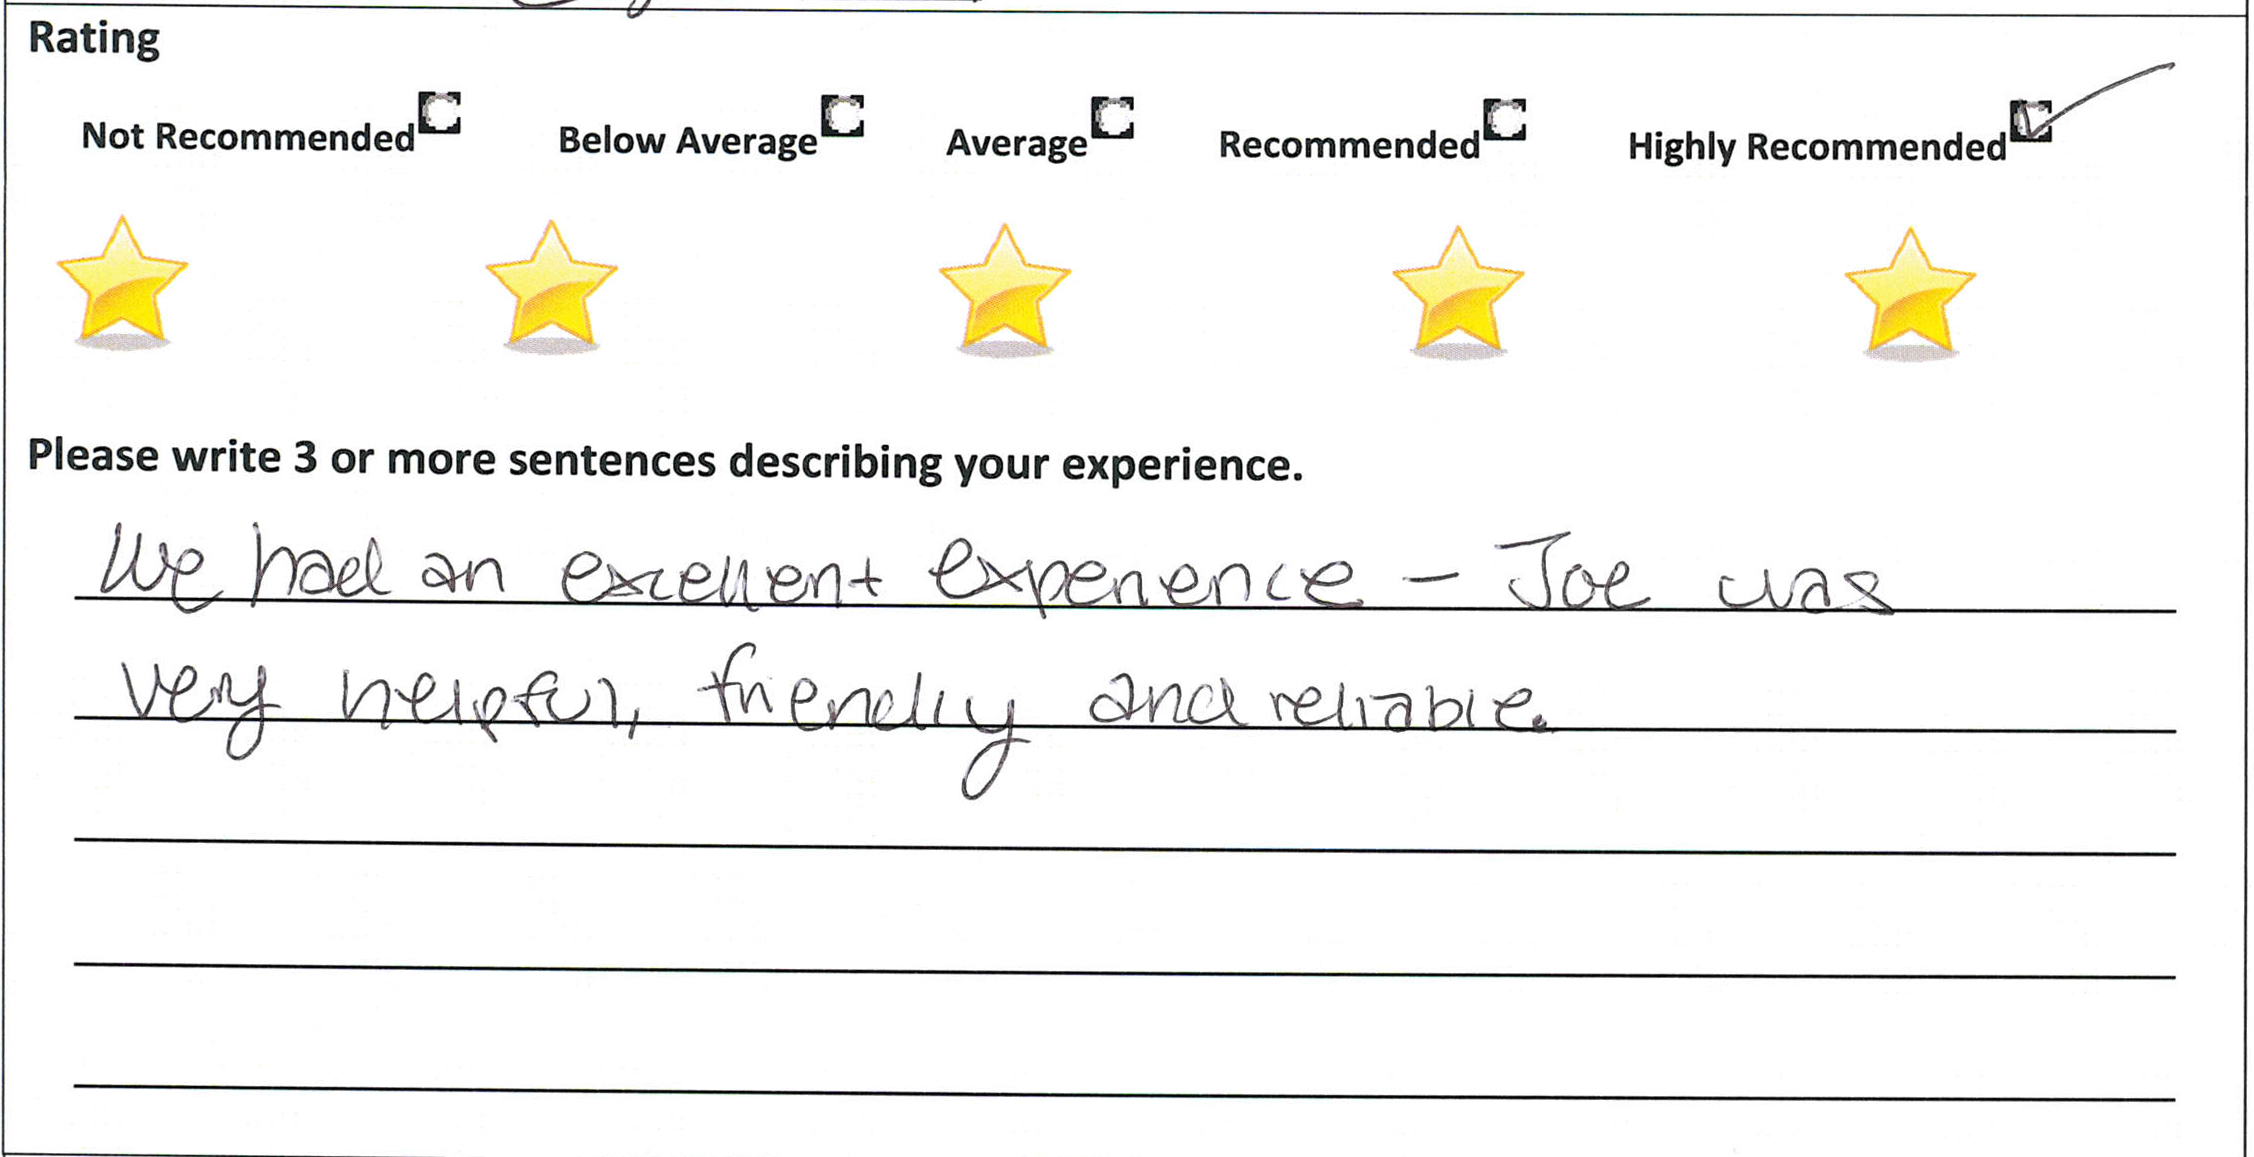 Rating
Not Recommended Below Average Average Recommended Highly Recommended
Please write 3 or more sentences describing your experience.
We had an excellent experience - Joe was
very helpful, friendly and reliable.